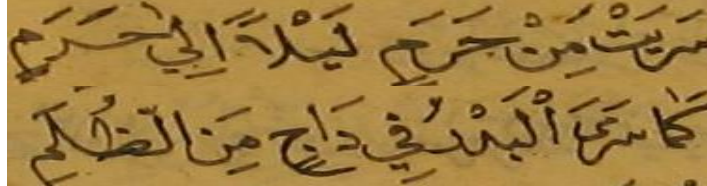 سَرَيْتَ مِنْ حَرَمٍ لَيْلًا إِلَى حَرَمٍ
كَمَا سَرَى الْبَدْرُ فِي دَاجٍ مِنَ الظُّلَمِ